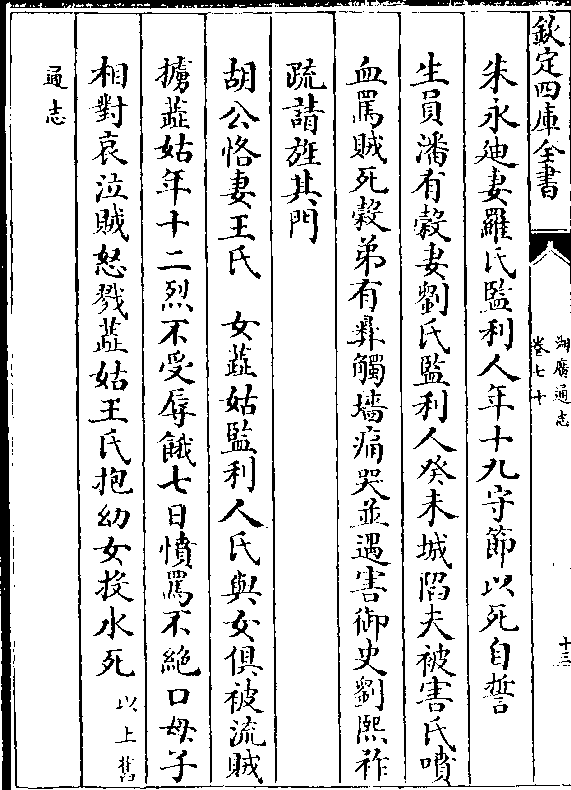 欽定四庫全書
湖廣通志
卷七十
十三
朱永廸妻羅氏監利人年十九守節以死自誓
生員潘有穀妻劉氏監利人癸未城陷夫被害氏噴
血罵賊死穀弟有彛觸墻痛哭並遇害御史劉熙祚
疏請旌其門
胡公恪妻王氏 女蕋姑監利人氏與女俱被流賊
擄蕋姑年十二烈不受辱餓七日憤罵不絶口母子
相對哀泣賊怒戮蕋姑王氏抱幼女投水死以上舊
通志